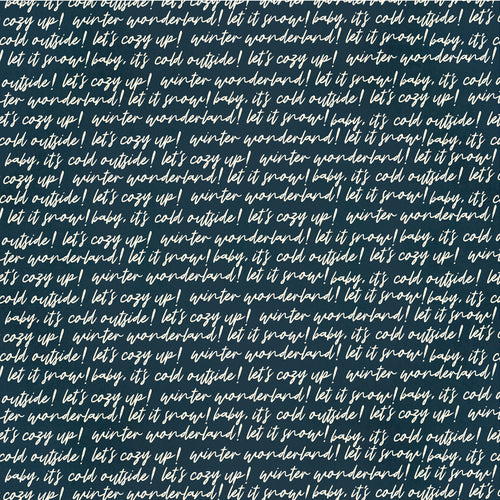 it's cold outside! let's cozy up! winter wonderland! let it snow! baby,
cold outside! let's cozy up! winter wonderland!
let it snow! baby, it's cold outside! let's cozy up!
outside! let's cozy up! winter wonderland! let it snow! baby,
ter wonderland! let it snow! baby, it's cold outside! let's cozy up!
et's cozy up! winter wonderland! let it snow! baby, it's cold
cold outside! let's cozy up! winter wonderland! let it snow!
baby, it's cold outside! let's cozy up! winter wonderland!
cozy up! winter wonderland! let it snow! baby, it's cold
let it snow! baby, it's cold outside! let's cozy up!
let it snow! baby, it's cold outside! let's cozy up! winter wonderland!
outside! let's cozy up! winter wonderland! let it snow! baby,
ter wonderland! let it snow! baby, it's cold outside! let's cozy up!
et's cozy up! winter wonderland! let it snow! baby, it's
cold outside! let's cozy up! winter wonderland! let it snow!
baby, it's cold outside! let's cozy up! winter wonderland!
cozy up! winter wonderland! let it snow! baby, it's cold
cold outside! let's cozy up! winter wonderland! let it snow!
let it snow! baby, it's cold outside! let's cozy up!
outside! let's cozy up! winter wonderland! let it snow! baby,
ter wonderland! let it snow! baby, it's cold outside! let's cozy up!
et's cozy up! winter wonderland! let it snow! baby, it's cold
baby, it's cold outside! let's cozy up! winter wonderland!
cozy up! winter wonderland! let it snow! baby, it's cold